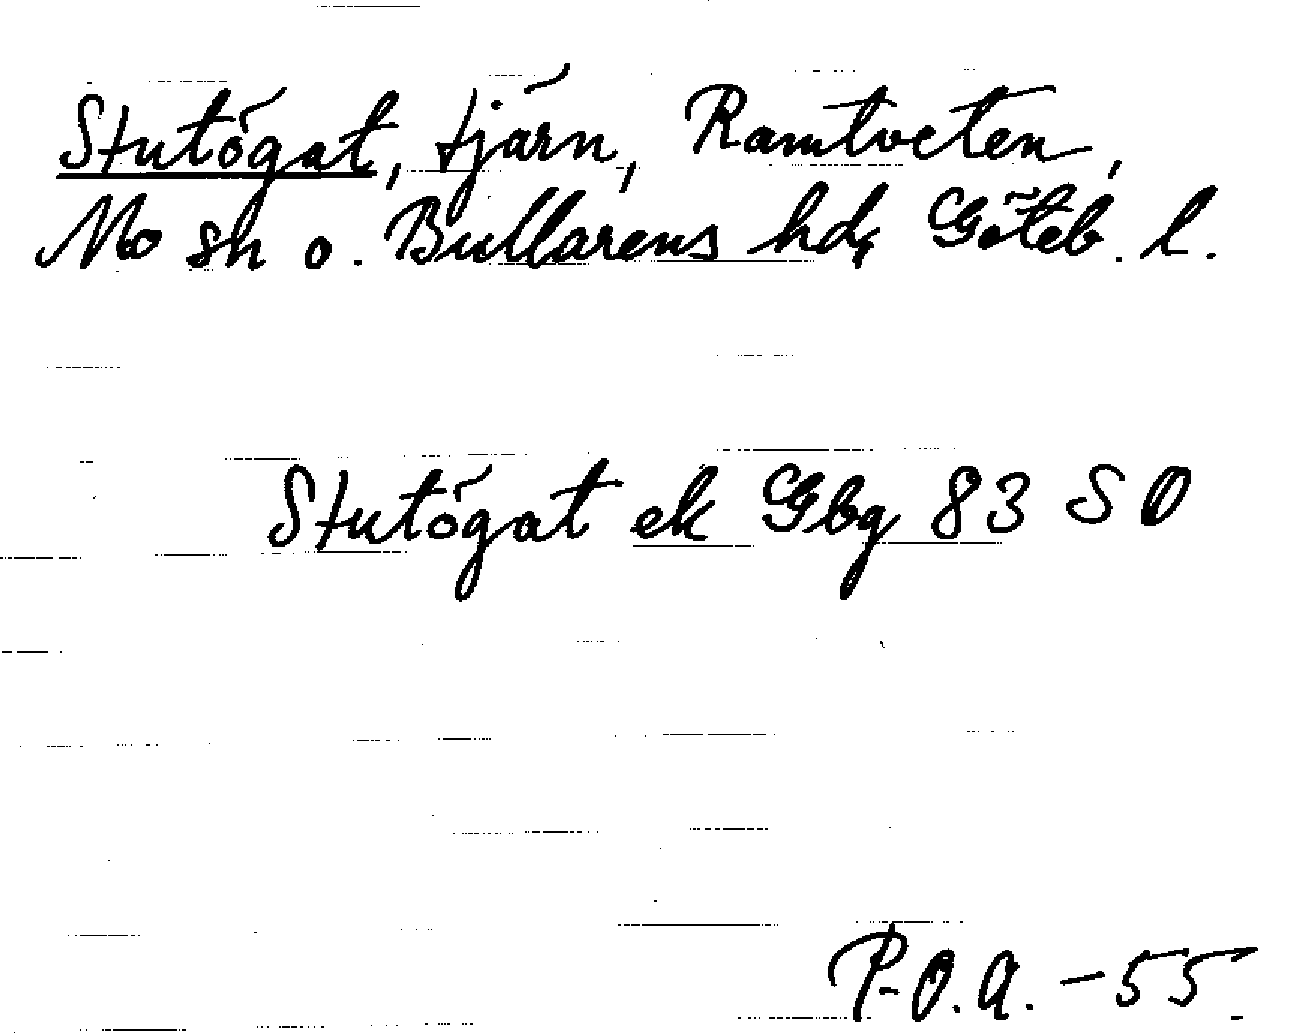 Stutögat, tjärn, Ramtveten,
Mo sn o. Bullarens hd, Göteb. l.
Stutögat ek Gbg 83 SO
P-O.A. -55